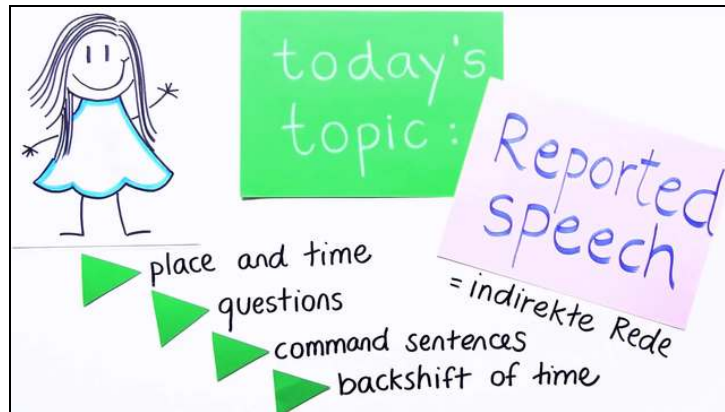 today's
topic:
Reported
speech
= indirekte Rede
place and time
questions
command sentences
backshift of time